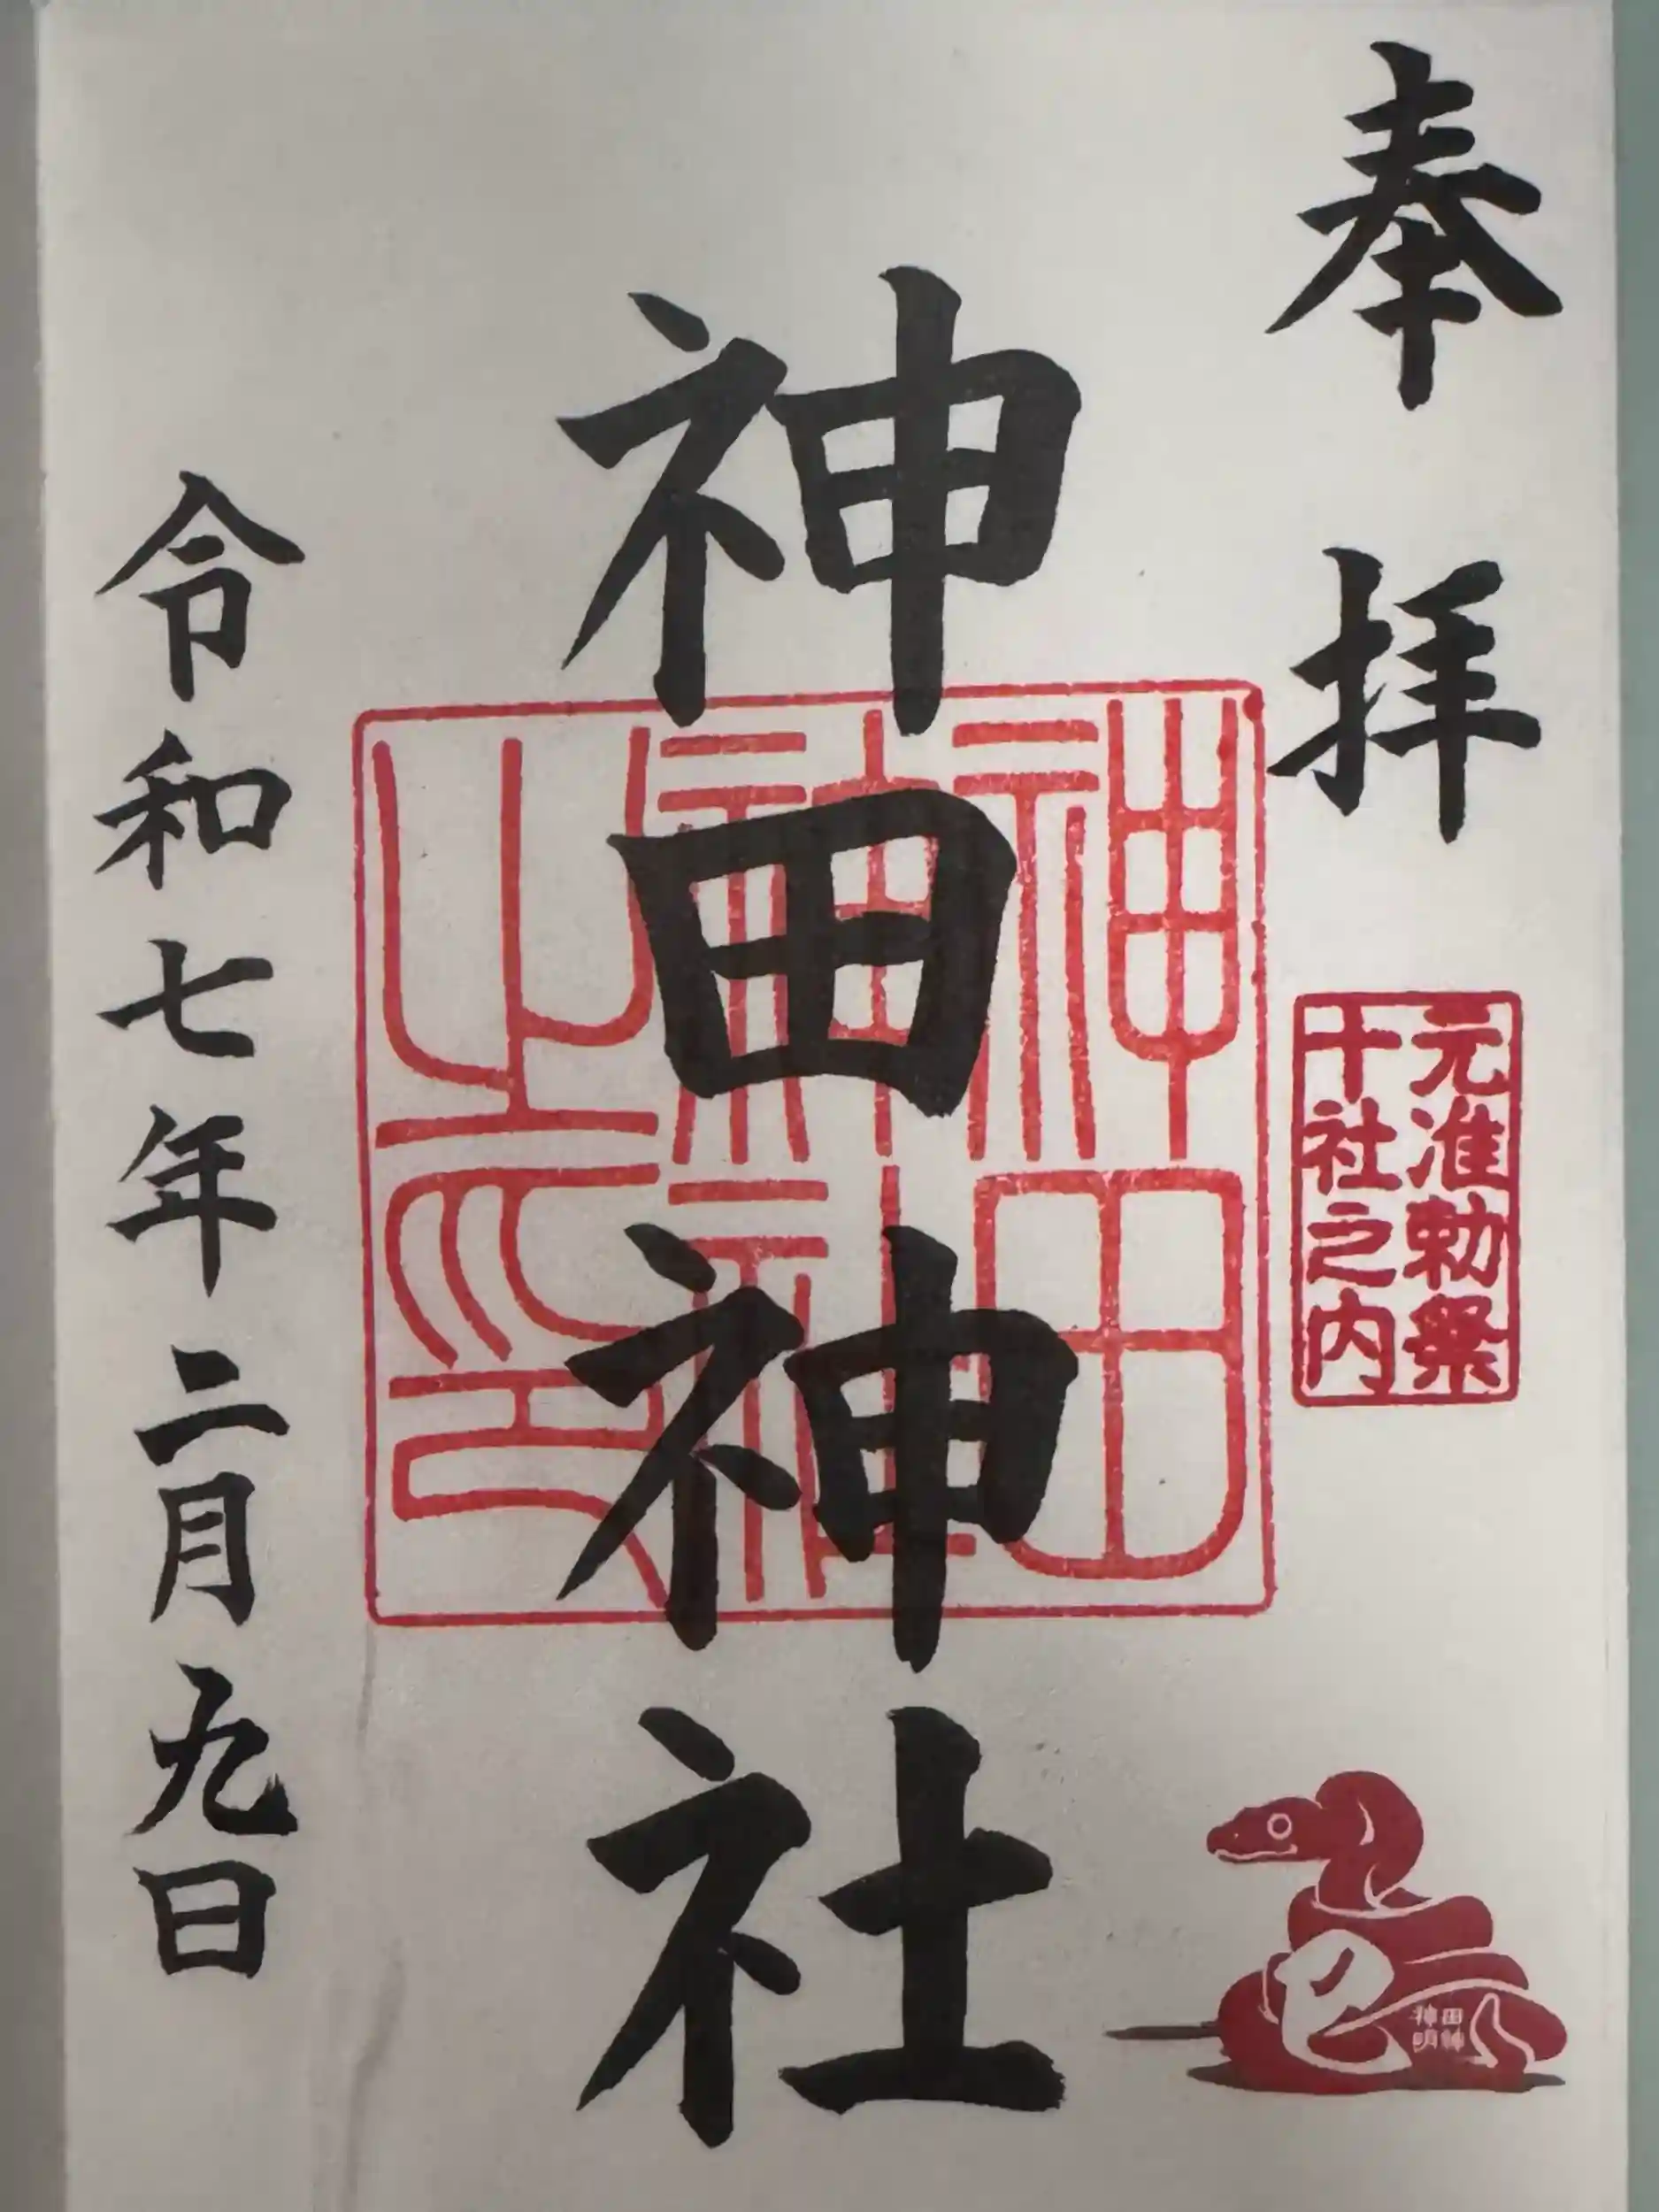 奉拝
元准勅祭
十社之内
神田神社
神田
神社
之印
令和七年二月九日
巳
神田
明神